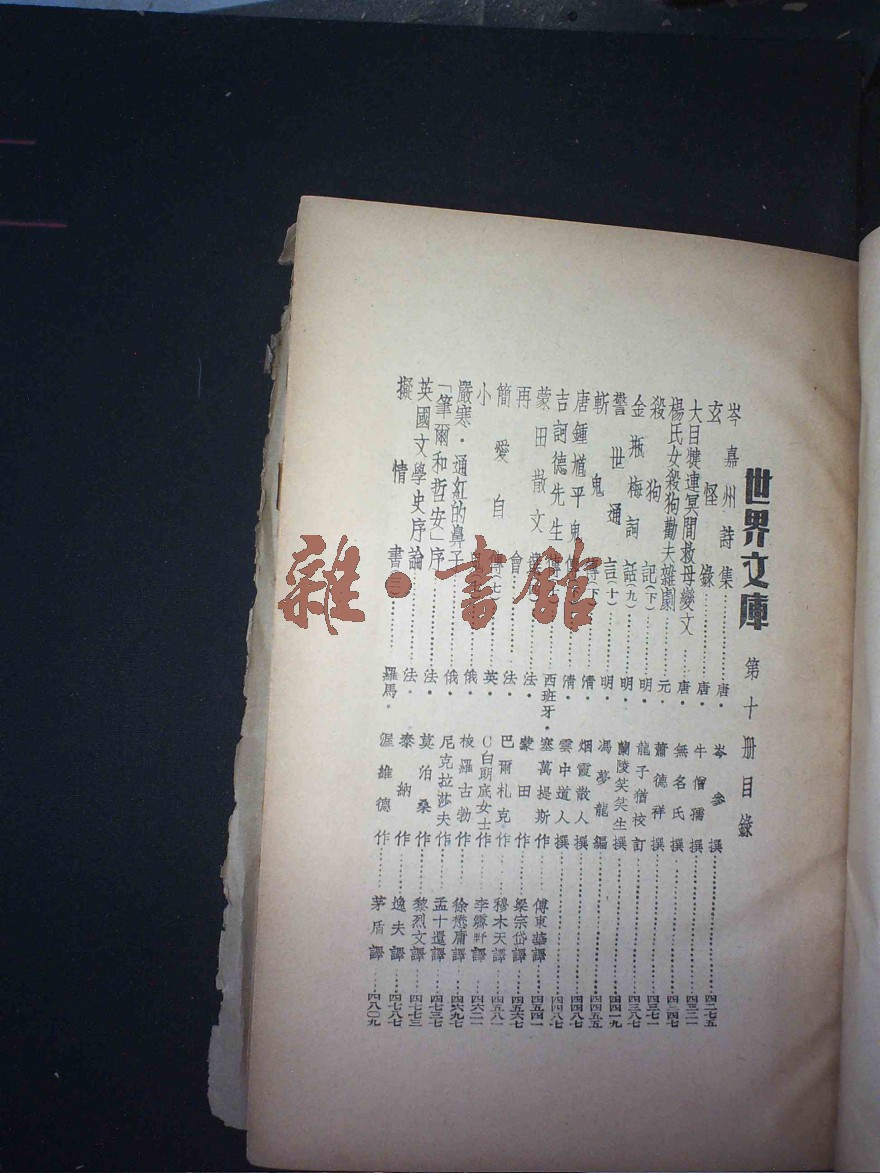 世界文庫 第十册目錄
岑嘉州詩集……唐・岑參撰……四二七五
玄怪錄……唐・牛僧孺撰……四三二一
大目犍連冥間救母變文……唐・無名氏撰……四三四七
楊氏女殺狗勸夫雜劇……元・蕭德祥撰……四三七一
殺狗記(下)……明・龍子猶校訂……四三八七
金瓶梅詞話(九)……明・蘭陵笑笑生撰……四四一九
警世通言(十)……明・馮夢龍編……四四五五
斬鬼傳(下)……清・烟霞散人撰……四四八七
唐鍾馗平鬼傳……清・雲中道人撰……
吉訶德先生傳……西班牙・塞萬提斯作……傅東華譯……四五四一
蒙田散文選……法・蒙田作……梁宗岱譯……四五六七
再會……法・巴爾札克作……穆木天譯……四五八一
簡愛自傳(七)……英・C白朗底女士作……李霽野譯……四六二一
小鬼……俄・梭羅古勃作……徐懋庸譯……四六九七
嚴寒・通紅的鼻子……俄・尼克拉莎夫作……孟十還譯……四七三七
「筆爾和哲安」序……法・莫泊桑作……黎烈文譯……四七七三
英國文學史序論……法・泰納作……逸夫譯……四七八七
擬情書……羅馬・渥維德作……茅盾譯……四八〇九
雜・書館